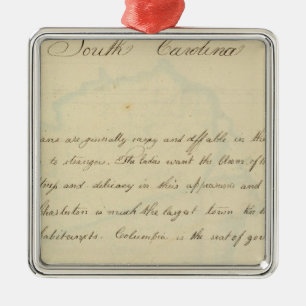 South Carolina
ans are generally easy and affable in the
to strangers. The ladies want the bloom of
and delicacy in their appearance and
Charleston is much the largest town
habitants. Columbia is the seat of gov